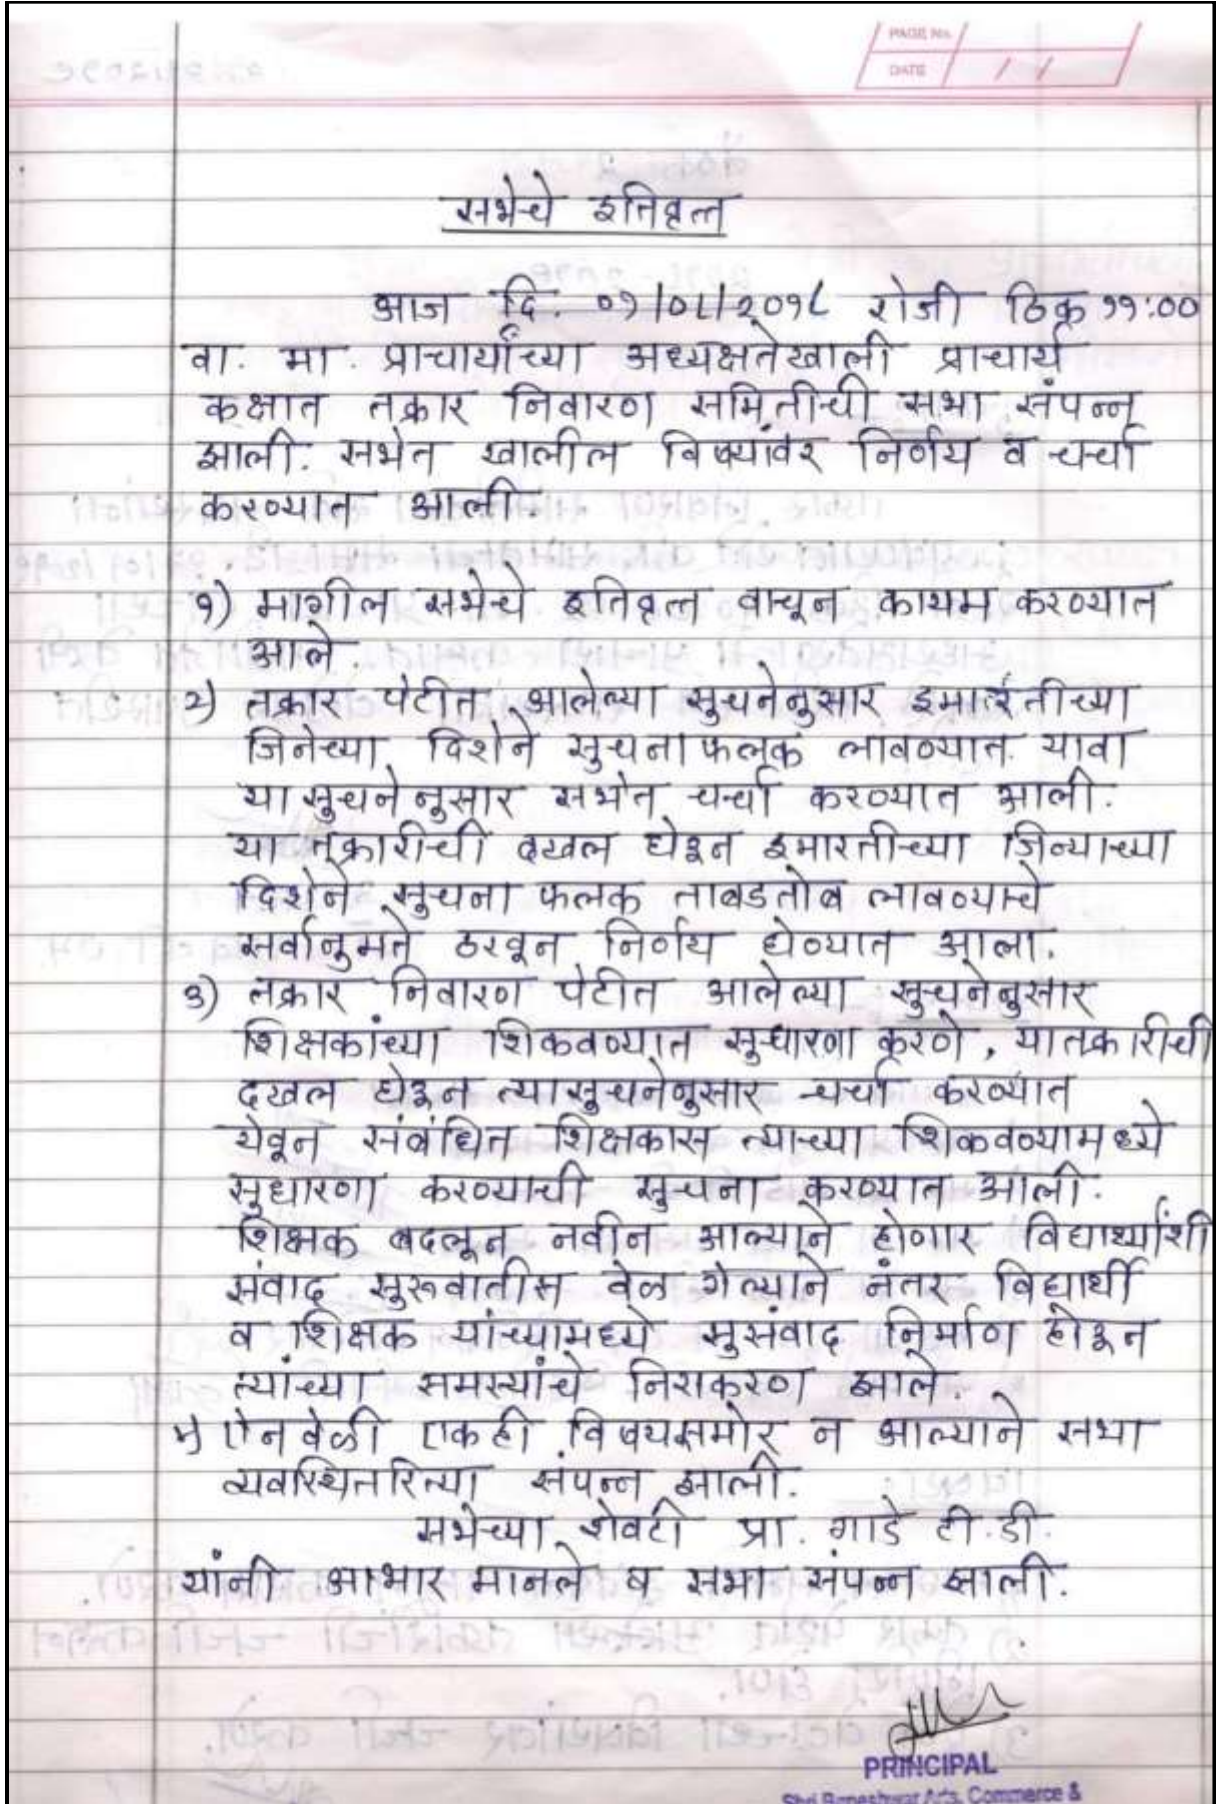 PAGE No.
DATE / /
सभेचे इतिवृत्त
आज दि. ०१/०८/२०१८ रोजी ठिक ११:००
वा. मा. प्राचार्यांच्या अध्यक्षतेखाली प्राचार्य
कक्षात तक्रार निवारण समितीची सभा संपन्न
झाली. सभेत खालील विषयांवर निर्णय व चर्चा
करण्यात आली.
१) मागील सभेचे इतिवृत्त वाचून कायम करण्यात
आले.
२) तक्रार पेटीत आलेल्या सुचनेनुसार इमारतीच्या
जिनेच्या दिशेने सुचना फलक लावण्यात यावा
या सुचनेनुसार सभेत चर्चा करण्यात आली.
या तक्रारीची दखल घेऊन इमारतीच्या जिन्याच्या
दिशेने सुचना फलक ताबडतोब लावण्याचे
सर्वानुमते ठरवून निर्णय घेण्यात आला.
३) तक्रार निवारण पेटीत आलेल्या सुचनेनुसार
शिक्षकांच्या शिकवण्यात सुधारणा करणे, या तक्रारीची
दखल घेऊन त्या सुचनेनुसार चर्चा करण्यात
येवून संबंधित शिक्षकास त्याच्या शिकवण्यामध्ये
सुधारणा करण्याची सुचना करण्यात आली.
शिक्षक बदलून नवीन आल्याने होणार विद्यार्थ्यांशी
संवाद सुरूवातीस वेळ गेल्याने नंतर विद्यार्थी
व शिक्षक यांच्यामध्ये सुसंवाद निर्माण होऊन
त्यांच्या समस्यांचे निराकरण झाले.
४) ऐनवेळी एकही विषय समोर न आल्याने सभा
व्यवस्थितरित्या संपन्न झाली.
सभेच्या शेवटी प्रा. गाडे टी.डी.
यांनी आभार मानले व सभा संपन्न झाली.
PRINCIPAL
Shri Baneshwar Arts, Commerce &